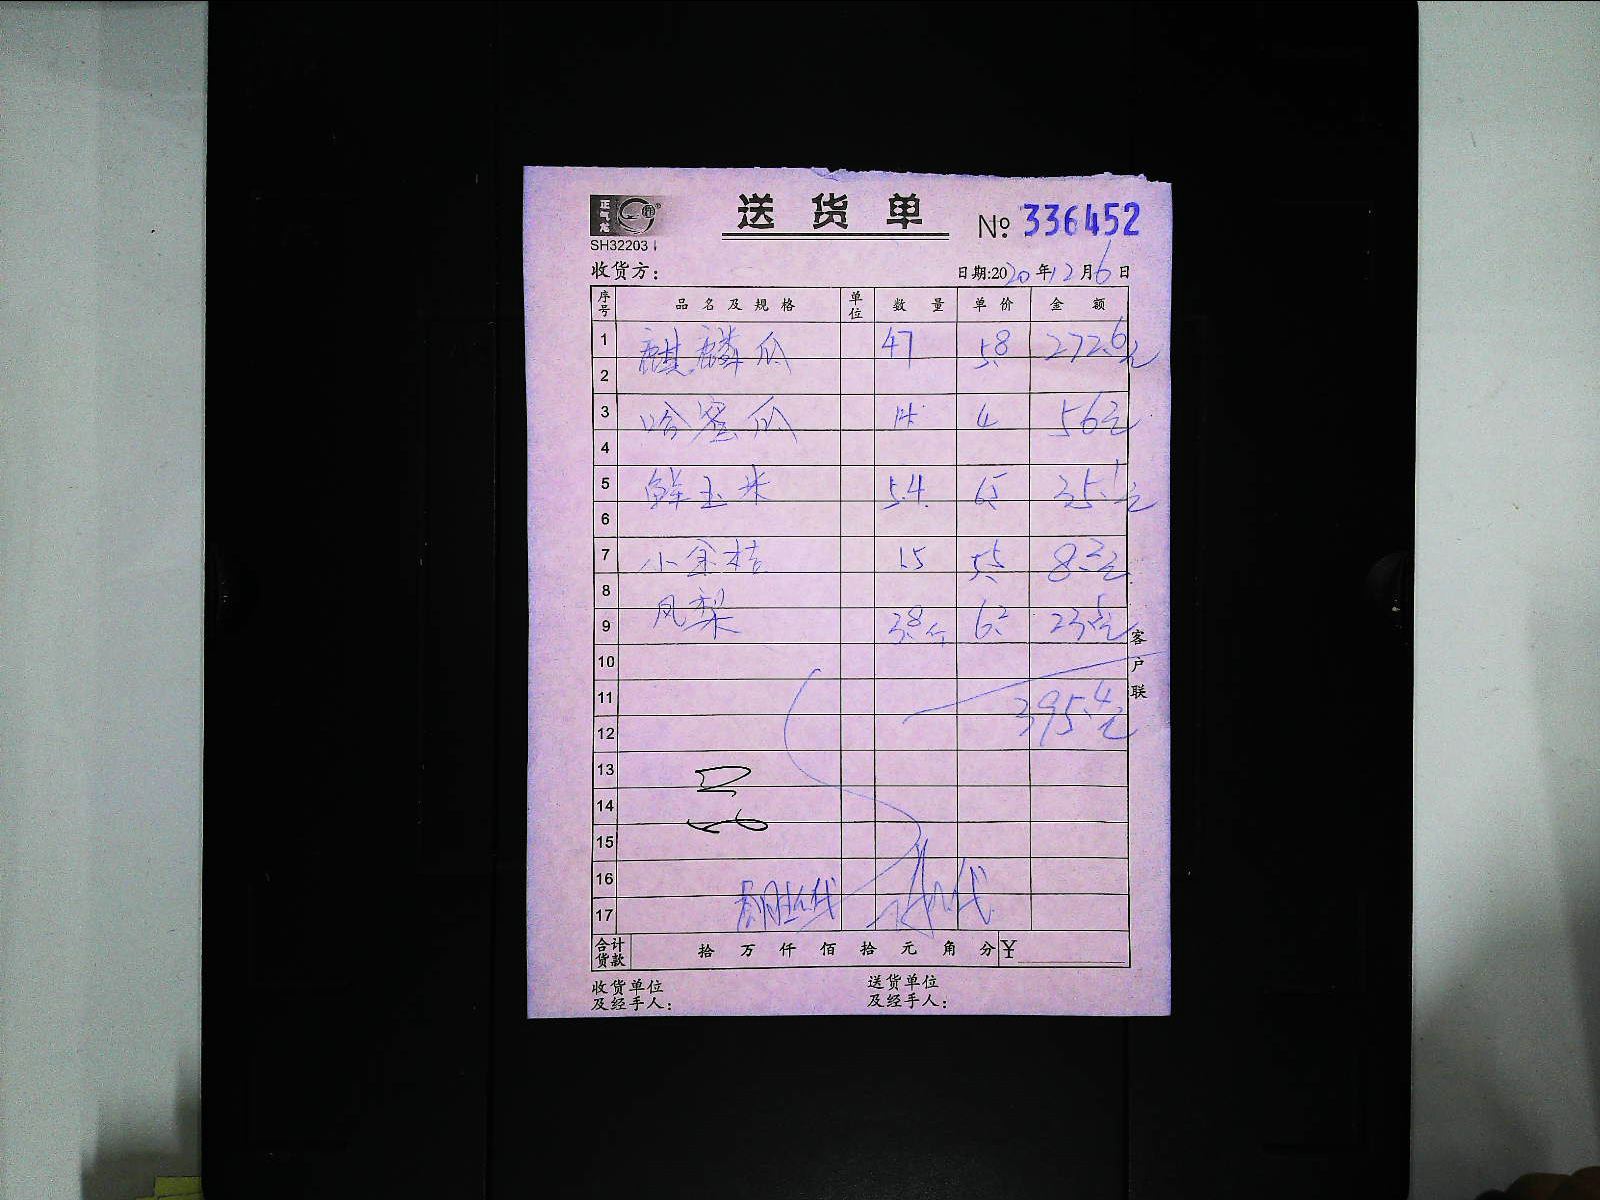 正气龙
送货单 № 336452
SH32203
收货方： 日期:2020年12月6日
序号 品名及规格 单位 数量 单价 金额
1 麒麟瓜 47 5.8 272.6元
2
3 哈蜜瓜 14 4 56元
4
5 鲜玉米 5.4 6.5 35.1元
6
7 小金桔 1.5 5.5 8.2元
8
9 凤梨 3.8斤 6.2 23.5元
10
11 395.4元
12
13
14
15
16
17
合计货款 拾万仟佰拾元角分 ￥
收货单位 送货单位
及经手人： 及经手人：
客户联